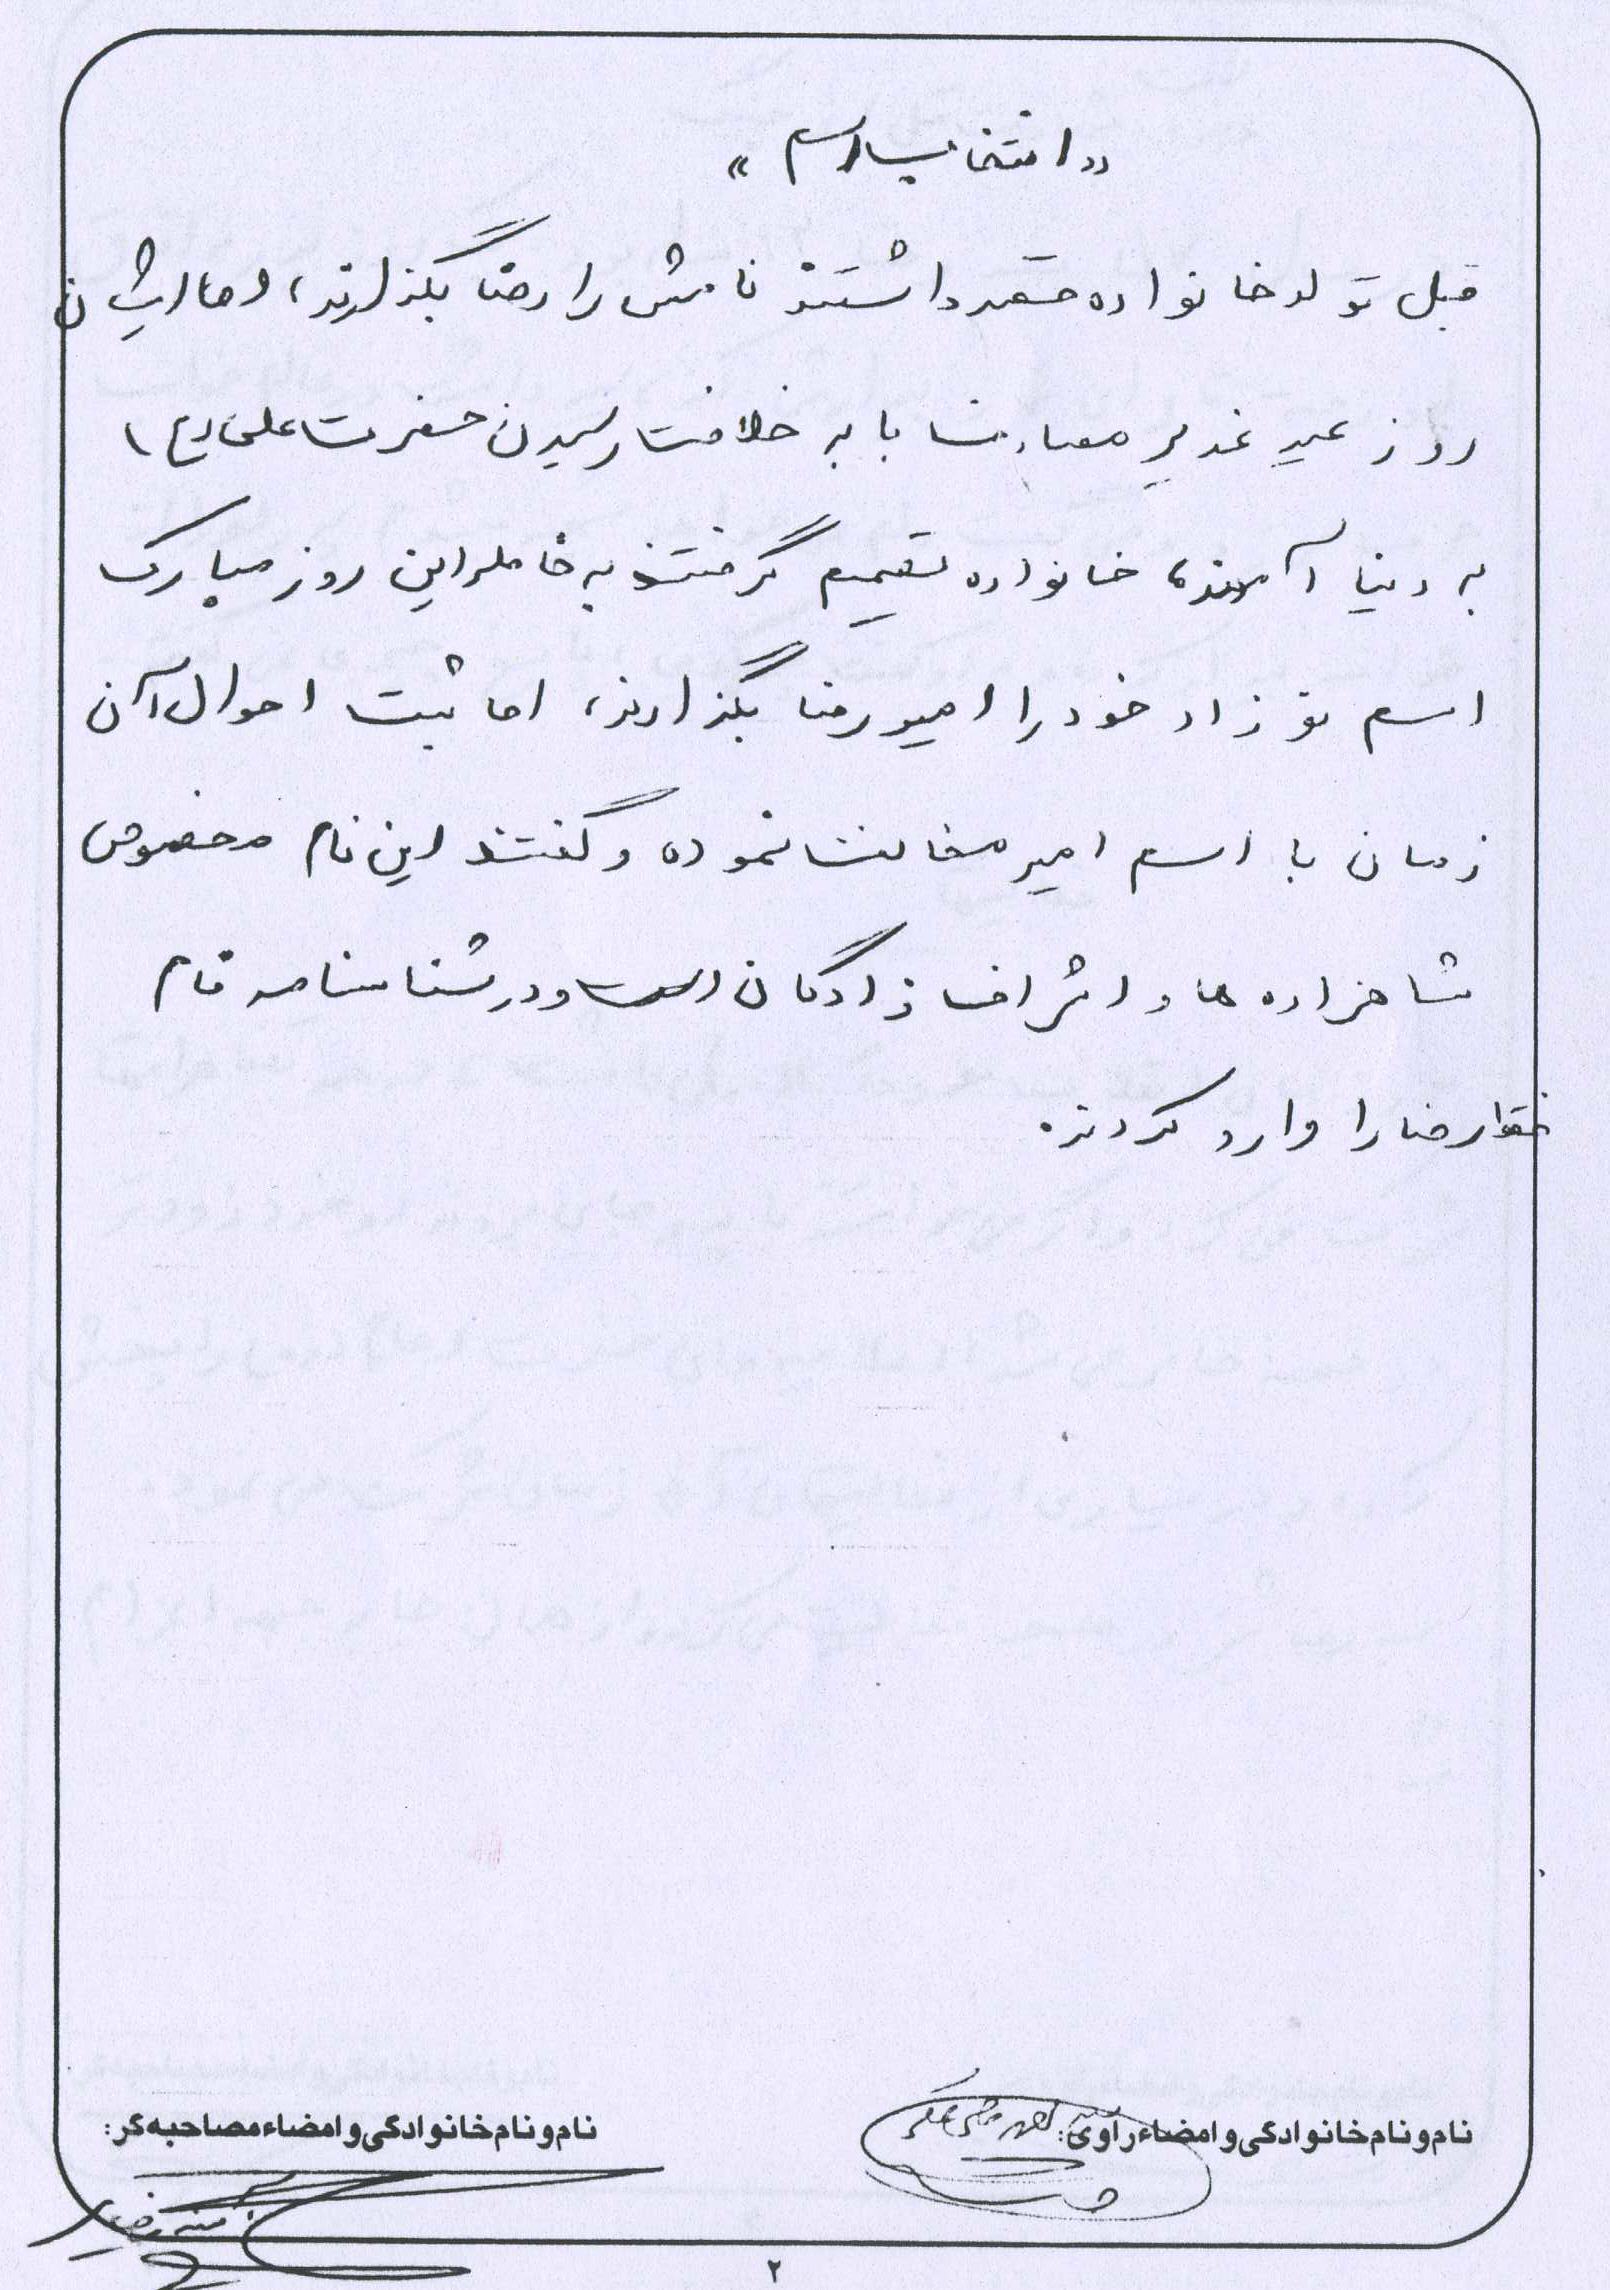 «انتخاب اسم»
قبل تولد خانواده قصد داشتند نامش را رضا بگذارند، اما ایشان
روز عید غدیر مصادف با به خلافت رسیدن حضرت علی (ع)
به دنیا آمدند، خانواده تصمیم گرفتند به خاطر این روز مبارک
اسم نوزاد خود را امیررضا بگذارند، اما ثبت احوال آن
زمان با اسم امیر مخالفت نموده و گفتند این نام مخصوص
شاهزاده ها و اشراف زادگان است و در شناسنامه نام
فقط رضا را وارد کردند.
نام و نام خانوادگی و امضاء راوی:
نام و نام خانوادگی و امضاء مصاحبه گر:
۲